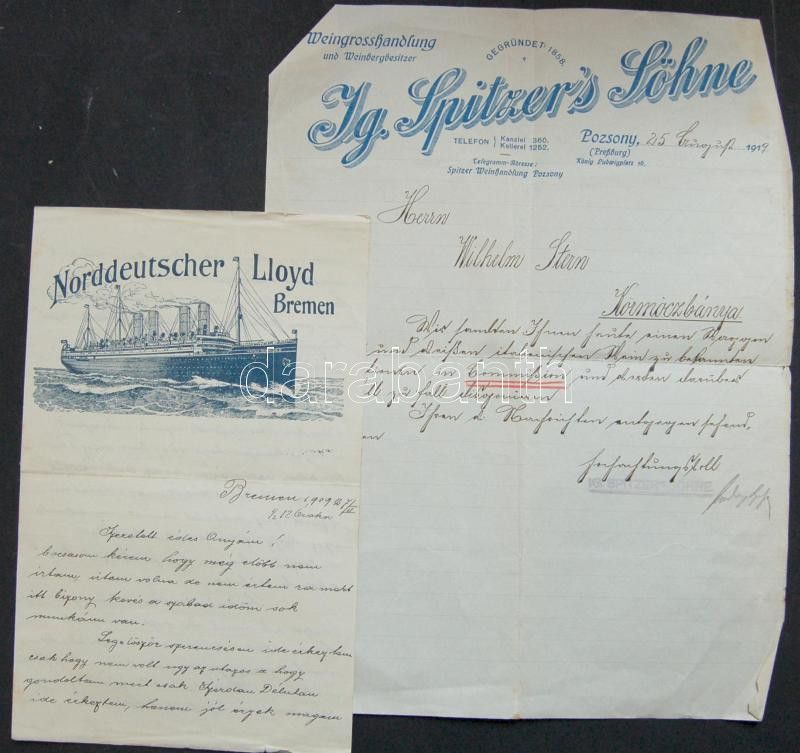 Weingrosshandlung
und Weinbergbesitzer
GEGRÜNDET 1858.
Ig. Spitzer's Söhne
TELEFON Kanzlei 360.
Kellerei 1252.
Telegramm-Adresse:
Spitzer Weinhandlung Pozsony
Pozsony, 25 August 1919
(Preßburg) König Ludwigplatz 16.
Herrn
Wilhelm Stern
Kormöczbánya
Wir sandten Ihnen heute einen Waggon
und weißen italienischen Wein zu bekannten
in Commission und werden darüber
zu fall disponieren
Ihren Nachrichten entgegen sehend,
hochachtungsvoll
IG. SPITZER'S SÖHNE
Norddeutscher Lloyd
Bremen
Bremen 1909
1/2 12 órakor
Szeretett édes Anyám!
bocsásson kérem hogy még előbb nem
irtam, irtam volna de nem értem rá mert
itt bizony kevés a szabad időm sok
munkám van.
Legelőször szerencsésen ide érkeztem
csak hogy nem volt ugy az utazás a hogy
gondoltam mert csak Szerdán Délután
ide érkeztem, hanem jól érzek magam
darabanth